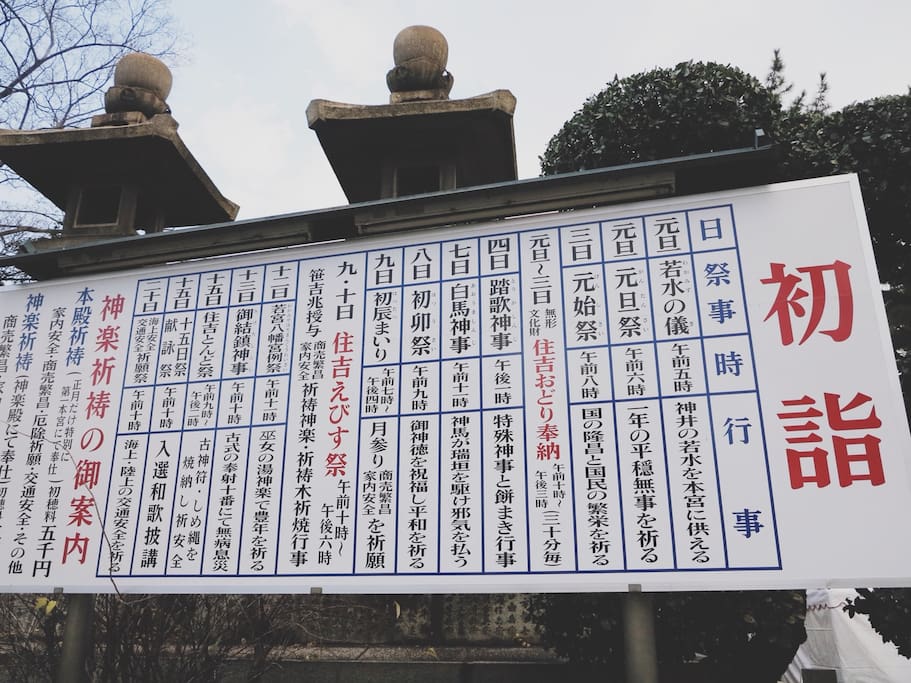 初詣
日 祭事 時 行事
元旦 若水の儀 午前五時 神井の若水を本宮に供える
元旦 元旦祭 午前六時 一年の平穏無事を祈る
三日 元始祭 午前八時 国の隆昌と国民の繁栄を祈る
元旦~三日 無形文化財 住吉おどり奉納 午前十時~午後三時 (三十分毎)
四日 踏歌神事 午後一時 特殊神事と餅まき行事
七日 白馬神事 午前十一時 神馬が瑞垣を駆け邪気を払う
八日 初卯祭 午前九時 御神徳を祝福し平和を祈る
九日 初辰まいり 午前七時~午後四時 月参り 商売繁昌 家内安全 を祈願
九・十日 住吉えびす祭 午前十時~午後六時
笹吉兆授与 商売繁昌 家内安全 祈祷神楽・祈祷木祈焼行事
十二日 若宮八幡宮例祭 午前十一時 巫女の湯神楽で豊年を祈る
十三日 御結鎮神事 午前十時 古式の奉射十番にて無病息災
十五日 住吉とんど祭 午前九時~午後一時 古神符・しめ縄を焼納し祈安全
十五日 献詠祭 午前十時 入選和歌披講
二十日 海上安全 交通安全 祈願祭 午前十時 海上・陸上の交通安全を祈る
神楽祈祷の御案内
本殿祈祷 (正月だけ特別に第一本宮にて奉仕) 初穂料 五千円
家内安全・商売繁昌・厄除祈願・交通安全・その他
神楽祈祷 (神楽殿にて奉仕) 初穂
商売繁昌・家